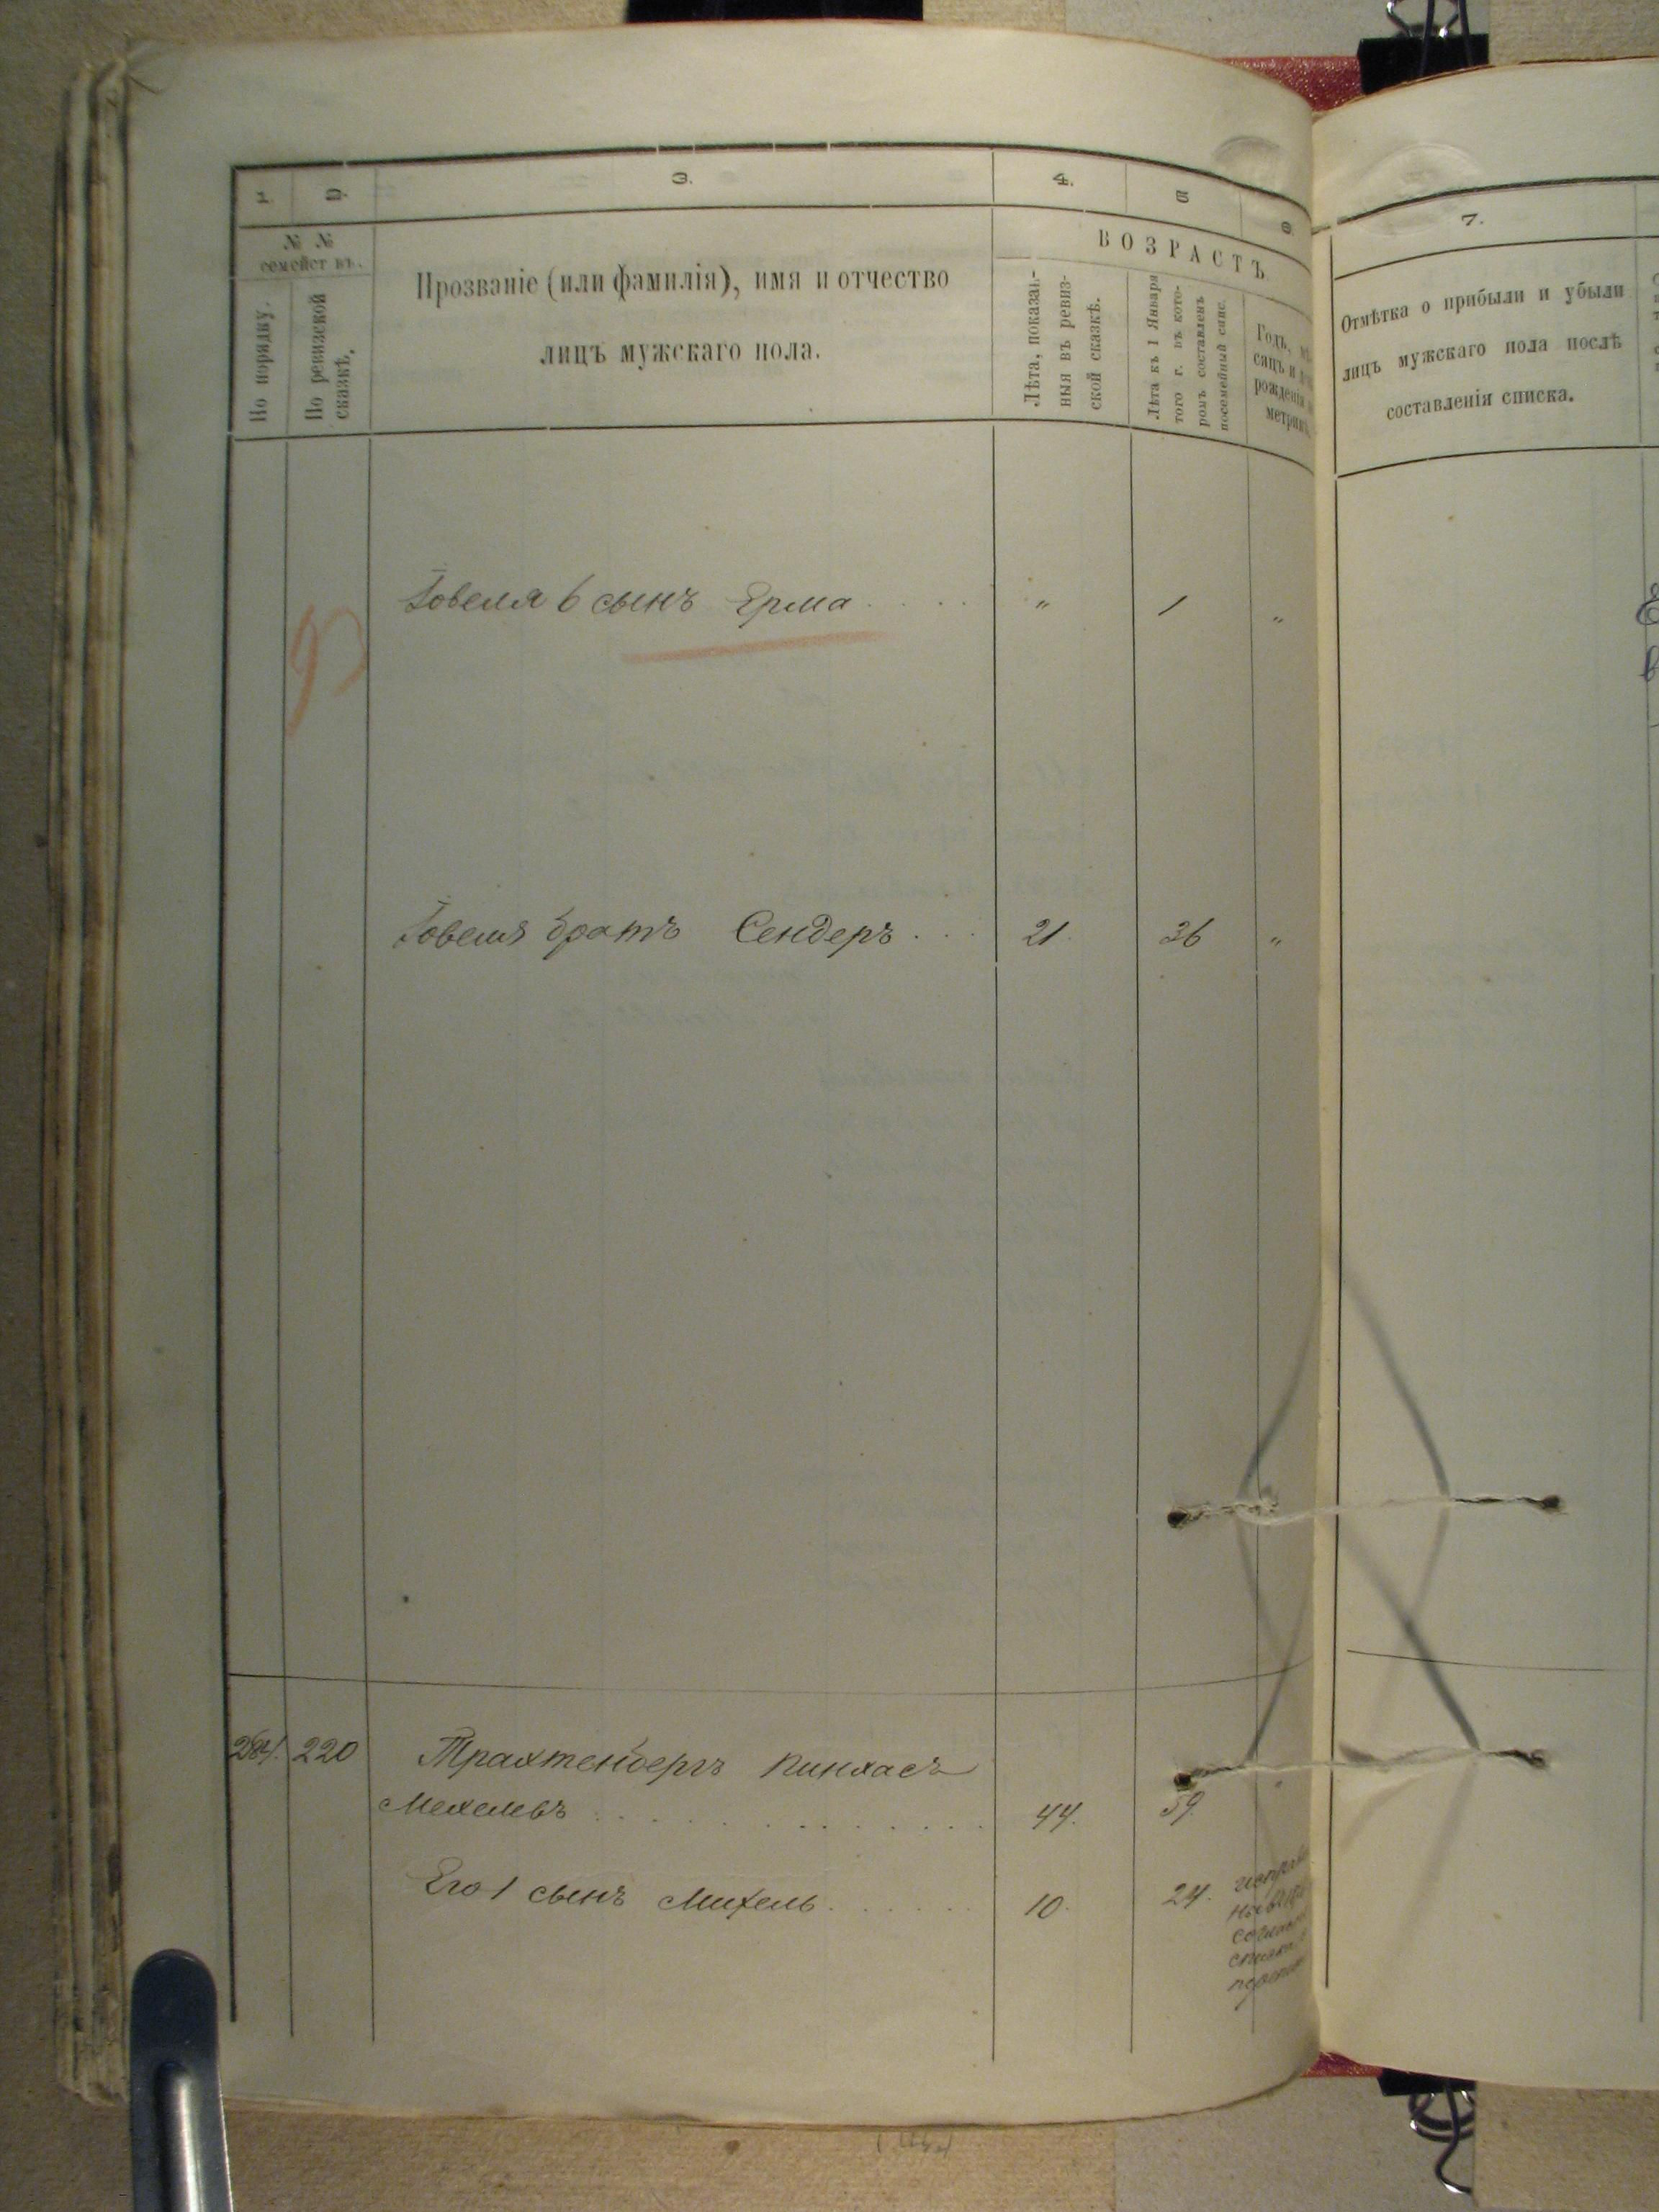 1. 2. 3. 4. 5 6
№ № семействъ.
По порядку.
По ревизской сказкѣ.
Прозваніе (или фамилія), имя и отчество
лицъ мужскаго пола.
ВОЗРАСТЪ.
Лѣта, показан-
ныя въ ревиз-
ской сказкѣ.
Лѣта къ 1 Января
того г. въ кото-
ромъ составленъ
посемейный спис.
Годъ, мѣ
сяцъ и
рожденія
метрик
7.
Отмѣтка о прибыли и убыли
лицъ мужскаго пола послѣ
составленія списка.
Іовеля 6 сынъ Ерма . . . . . " 1 "
Іовеля братъ Сендеръ . . . 21. 36 "
284. 220 Трахтенбергъ Пинхасъ
Мехелевъ . . . . . . . . . . . . 44. 59.
Его 1 сынъ Михель . . . . . . 10. 24.